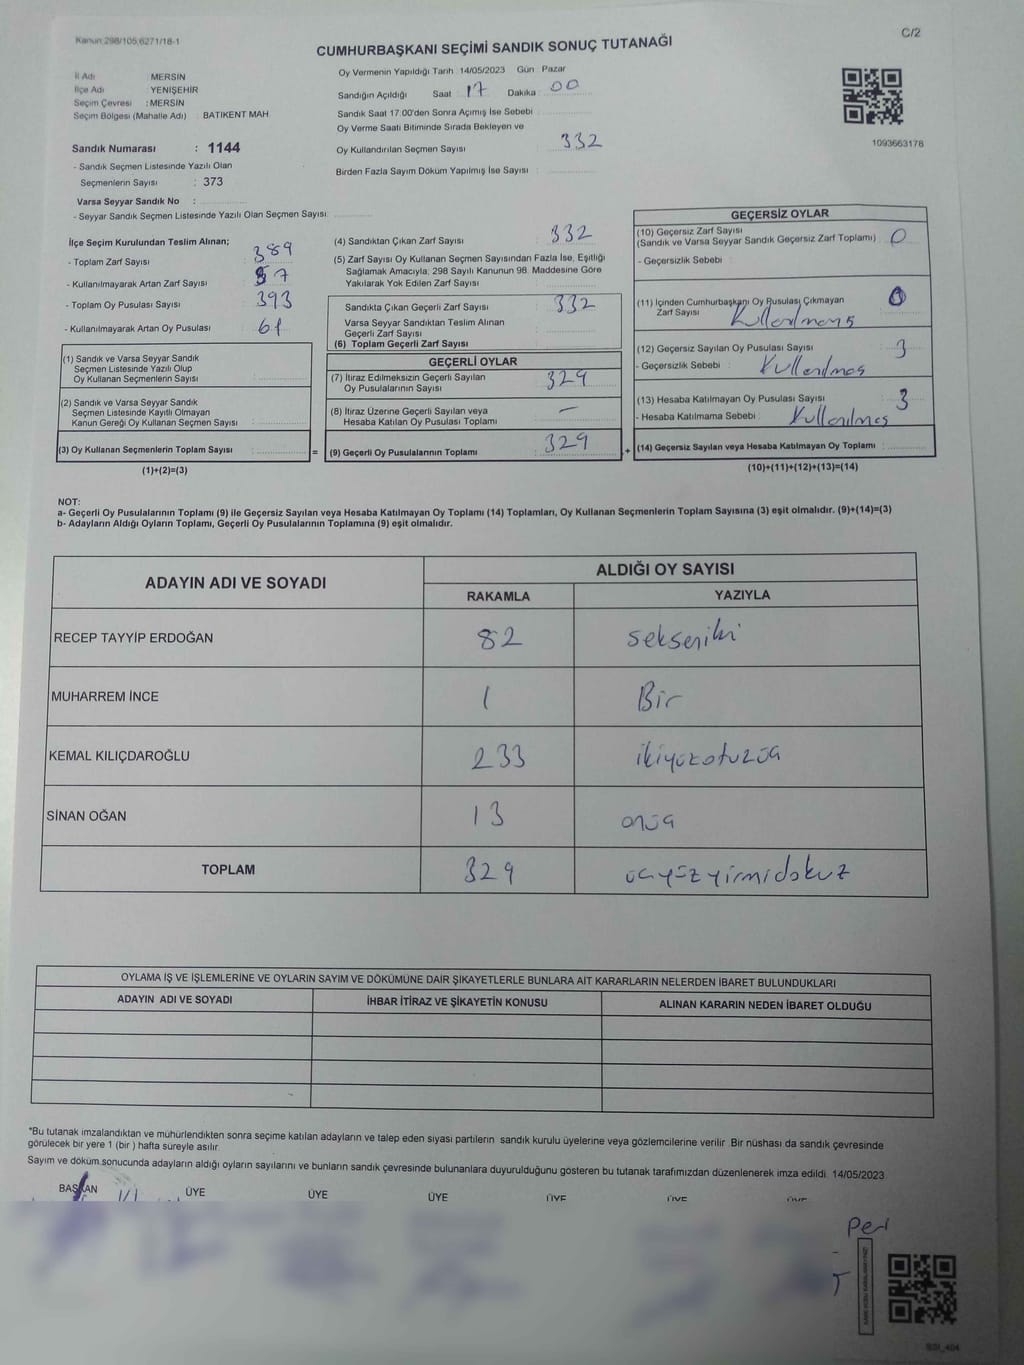 Kanun:298/105;6271/18-1
C/2
CUMHURBAŞKANI SEÇİMİ SANDIK SONUÇ TUTANAĞI
İl Adı : MERSİN
İlçe Adı : YENİŞEHİR
Seçim Çevresi : MERSİN
Seçim Bölgesi (Mahalle Adı) : BATIKENT MAH.
Sandık Numarası : 1144
- Sandık Seçmen Listesinde Yazılı Olan
Seçmenlerin Sayısı : 373
Varsa Seyyar Sandık No :
- Seyyar Sandık Seçmen Listesinde Yazılı Olan Seçmen Sayısı:
Oy Vermenin Yapıldığı Tarih :14/05/2023 Gün : Pazar
Sandığın Açıldığı Saat : 17 Dakika : 00
Sandık Saat 17:00'den Sonra Açımış İse Sebebi :
Oy Verme Saati Bitiminde Sırada Bekleyen ve
Oy Kullandırılan Seçmen Sayısı : 332
Birden Fazla Sayım Döküm Yapılmış İse Sayısı :
1093663178
İlçe Seçim Kurulundan Teslim Alınan;
- Toplam Zarf Sayısı : 389
- Kullanılmayarak Artan Zarf Sayısı : 57
- Toplam Oy Pusulası Sayısı : 393
- Kullanılmayarak Artan Oy Pusulası : 61
(1) Sandık ve Varsa Seyyar Sandık
Seçmen Listesinde Yazılı Olup
Oy Kullanan Seçmenlerin Sayısı :
(2) Sandık ve Varsa Seyyar Sandık
Seçmen Listesinde Kayıtlı Olmayan
Kanun Gereği Oy Kullanan Seçmen Sayısı :
(3) Oy Kullanan Seçmenlerin Toplam Sayısı :
(1)+(2)=(3)
=
(4) Sandıktan Çıkan Zarf Sayısı : 332
(5) Zarf Sayısı Oy Kullanan Seçmen Sayısından Fazla İse, Eşitliği
Sağlamak Amacıyla; 298 Sayılı Kanunun 98. Maddesine Göre
Yakılarak Yok Edilen Zarf Sayısı :
Sandıkta Çıkan Geçerli Zarf Sayısı : 332
Varsa Seyyar Sandıktan Teslim Alınan
Geçerli Zarf Sayısı :
(6) Toplam Geçerli Zarf Sayısı :
GEÇERLİ OYLAR
(7) İtiraz Edilmeksizin Geçerli Sayılan
Oy Pusulalarının Sayısı : 329
(8) İtiraz Üzerine Geçerli Sayılan veya
Hesaba Katılan Oy Pusulası Toplamı : —
(9) Geçerli Oy Pusulalarının Toplamı : 329
+
GEÇERSİZ OYLAR
(10) Geçersiz Zarf Sayısı
(Sandık ve Varsa Seyyar Sandık Geçersiz Zarf Toplamı) : 0
- Geçersizlik Sebebi :
(11) İçinden Cumhurbaşkanı Oy Pusulası Çıkmayan
Zarf Sayısı : 0
(12) Geçersiz Sayılan Oy Pusulası Sayısı : 3
- Geçersizlik Sebebi :
(13) Hesaba Katılmayan Oy Pusulası Sayısı : 3
- Hesaba Katılmama Sebebi :
(14) Geçersiz Sayılan veya Hesaba Katılmayan Oy Toplamı :
(10)+(11)+(12)+(13)=(14)
NOT:
a- Geçerli Oy Pusulalarının Toplamı (9) ile Geçersiz Sayılan veya Hesaba Katılmayan Oy Toplamı (14) Toplamları, Oy Kullanan Seçmenlerin Toplam Sayısına (3) eşit olmalıdır. (9)+(14)=(3)
b- Adayların Aldığı Oyların Toplamı, Geçerli Oy Pusulalarının Toplamına (9) eşit olmalıdır.
ADAYIN ADI VE SOYADI
ALDIĞI OY SAYISI
RAKAMLA YAZIYLA
RECEP TAYYİP ERDOĞAN 82 sekseniki
MUHARREM İNCE 1 Bir
KEMAL KILIÇDAROĞLU 233 ikiyüzotuzüç
SİNAN OĞAN 13 onüç
TOPLAM 329 üçyüzyirmidokuz
OYLAMA İŞ VE İŞLEMLERİNE VE OYLARIN SAYIM VE DÖKÜMÜNE DAİR ŞİKAYETLERLE BUNLARA AİT KARARLARIN NELERDEN İBARET BULUNDUKLARI
ADAYIN ADI VE SOYADI İHBAR İTİRAZ VE ŞİKAYETİN KONUSU ALINAN KARARIN NEDEN İBARET OLDUĞU
*Bu tutanak imzalandıktan ve mühürlendikten sonra seçime katılan adayların ve talep eden siyasi partilerin sandık kurulu üyelerine veya gözlemcilerine verilir. Bir nüshası da sandık çevresinde
görülecek bir yere 1 (bir) hafta süreyle asılır.
Sayım ve döküm sonucunda adayların aldığı oyların sayılarını ve bunların sandık çevresinde bulunanlara duyurulduğunu gösteren bu tutanak tarafımızdan düzenlenerek imza edildi. 14/05/2023
BAŞKAN ÜYE ÜYE ÜYE ÜYE ÜYE ÜYE